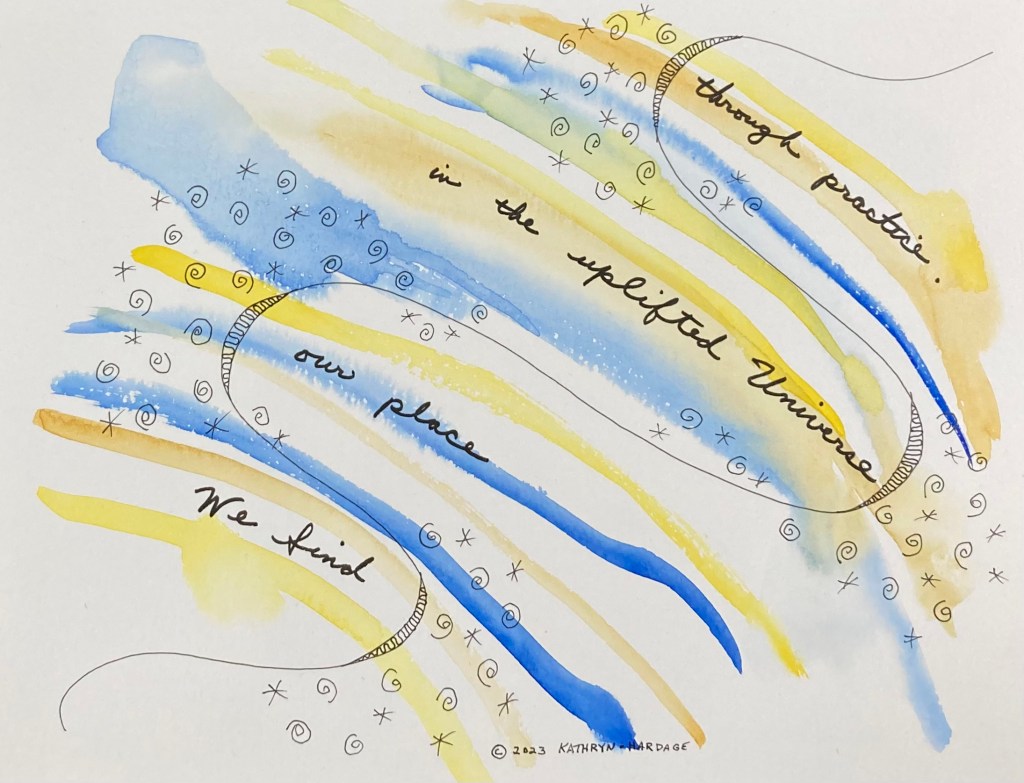 We find
our place
in the uplifted Universe
through practice.
© 2023 KATHRYN HARDAGE